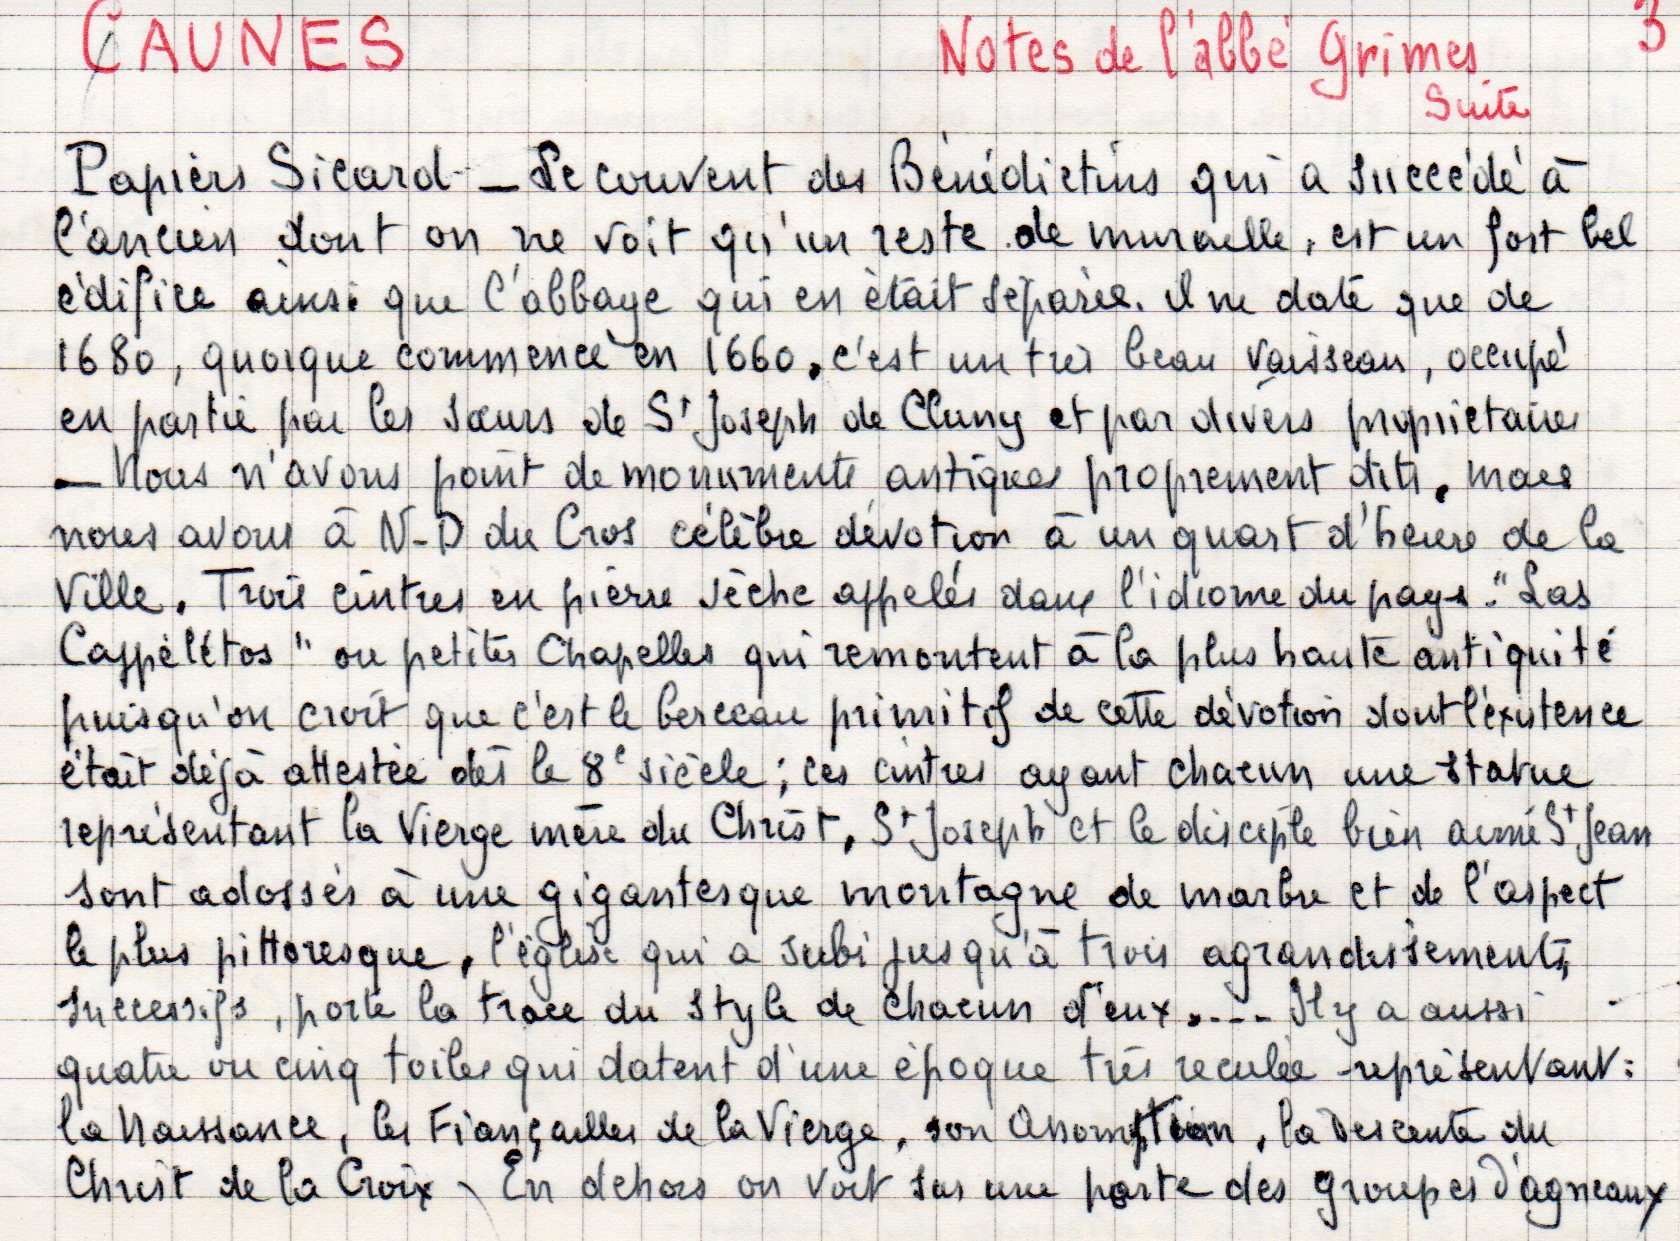 CAUNES
Notes de l'abbé Grimes 3
Suite
Papiers Sicard - Le couvent des Bénédictins qui a succédé à
l'ancien dont on ne voit qu'un reste de muraille, est un fort bel
édifice ainsi que l'abbaye qui en était séparée. Il ne date que de
1680, quoique commencé en 1660, c'est un très beau vaisseau, occupé
en partie par les sœurs de St Joseph de Cluny et par divers propriétaires
- Nous n'avons point de monuments antiques proprement dits, mais
nous avons à N-D du Cros célèbre dévotion à un quart d'heure de la
Ville. Trois cintres en pierre sèche appelés dans l'idiome du pays : "Las
Cappélétos" ou petites Chapelles qui remontent à la plus haute antiquité
puisqu'on croit que c'est le berceau primitif de cette dévotion dont l'existence
était déjà attestée dès le 8e siècle ; ces cintres ayant chacun une statue
représentant la Vierge mère du Christ, St Joseph et le disciple bien aimé St Jean
sont adossés à une gigantesque montagne de marbre et de l'aspect
le plus pittoresque, l'église qui a subi jusqu'à trois agrandissements,
successifs, porte la trace du style de chacun d'eux.... Il y a aussi
quatre ou cinq toiles qui datent d'une époque très reculée représentant :
la Naissance, les Fiançailles de la Vierge, son Assomption, la Descente du
Christ de la Croix - En dehors on voit sur une porte des groupes d'agneaux